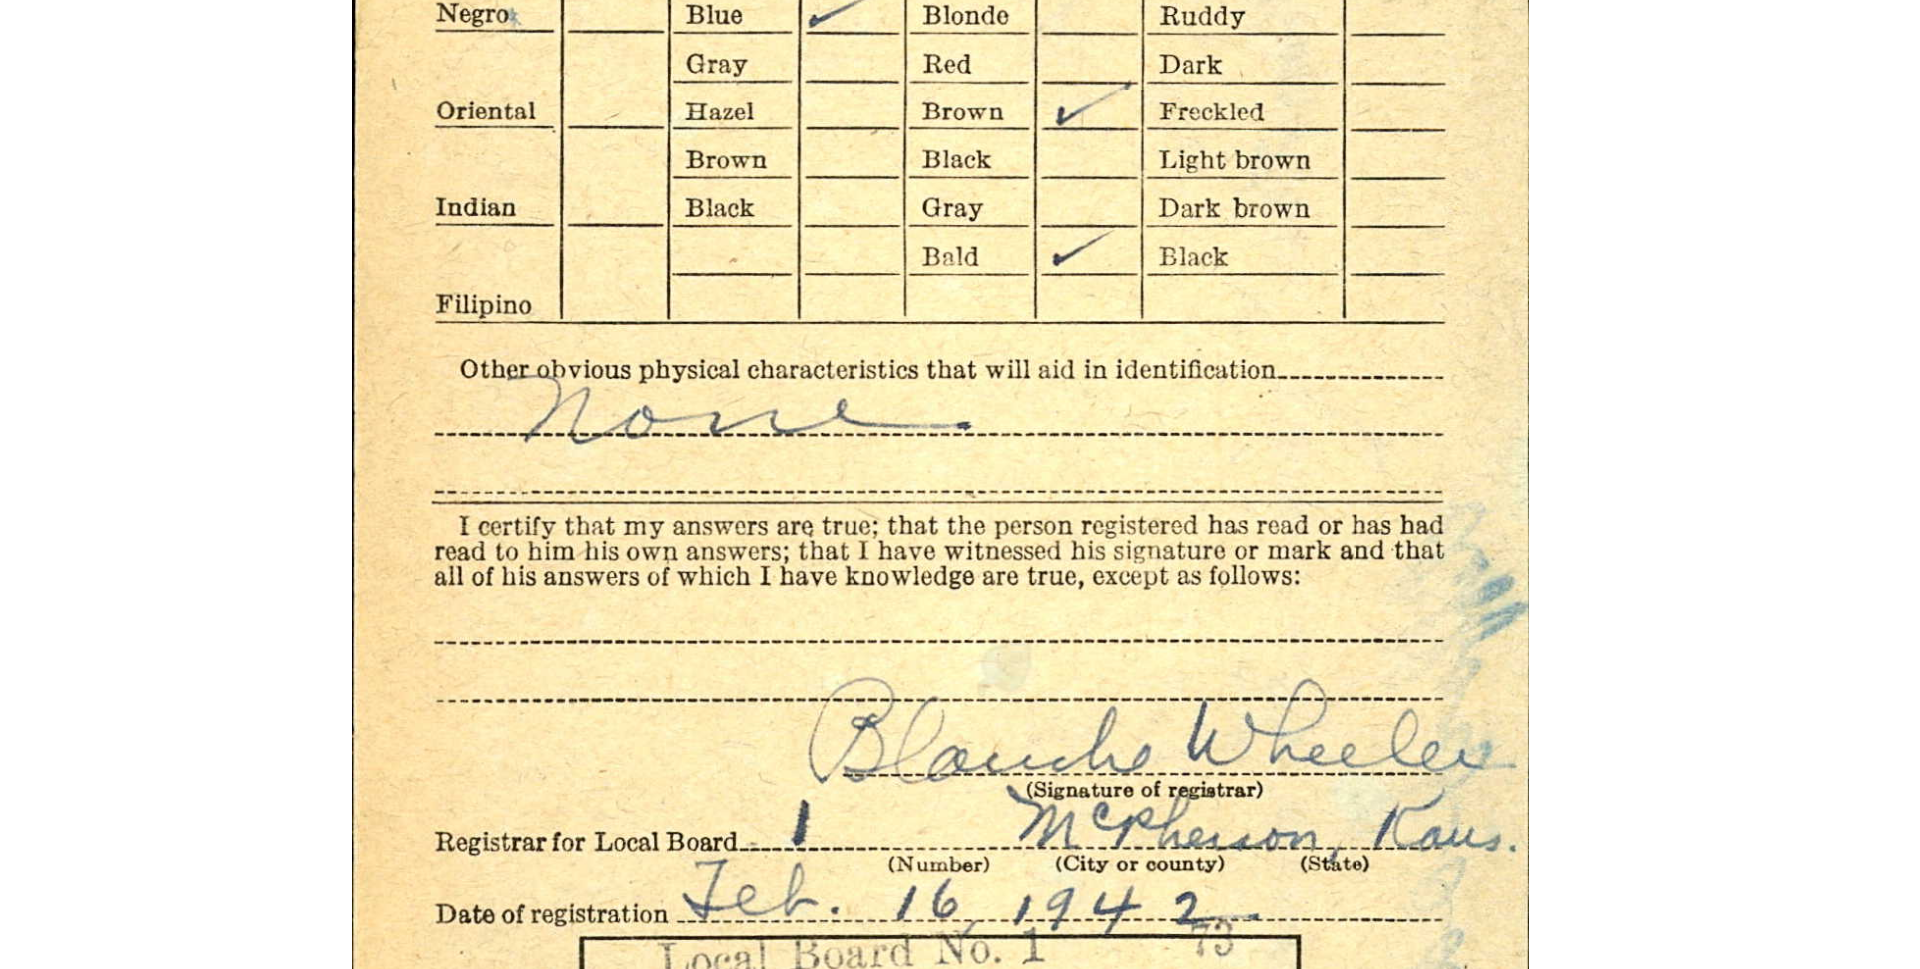 Negro Blue ✓ Blonde Ruddy
Gray Red Dark
Oriental Hazel Brown ✓ Freckled
Brown Black Light brown
Indian Black Gray Dark brown
Bald ✓ Black
Filipino
Other obvious physical characteristics that will aid in identification
None
I certify that my answers are true; that the person registered has read or has had
read to him his own answers; that I have witnessed his signature or mark and that
all of his answers of which I have knowledge are true, except as follows:
Blanche Wheeler
(Signature of registrar)
Registrar for Local Board 1 McPherson, Kans.
(Number) (City or county) (State)
Date of registration Feb. 16, 1942
Local Board No. 1 73